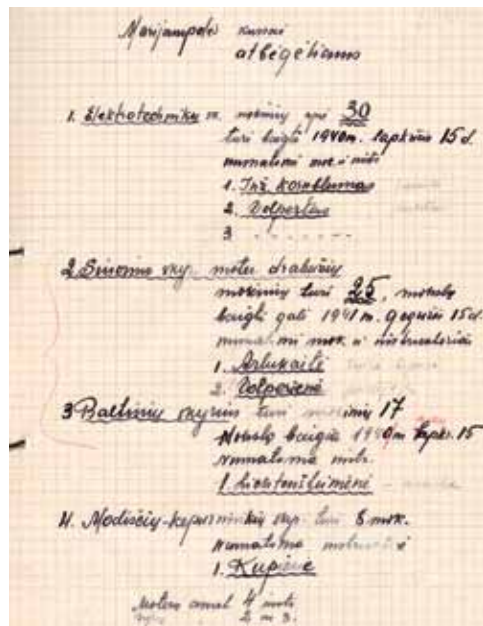 Marijampolės kursai
atbėgėliams
1. Elektrotechnikų sk. mokinių apie 30
turi baigti 1940m. lapkričio 15 d.
numatomi
1. Inž. Kornblumas
2. Volpertas
3 - - - - - - -
2 Siuvimo sky. moter. drabužių
mokinių turi 25, mokslo
baigti gali 1941 m. gegužio 15 d.
numatomi mok. ir
1. Arlukaitė
2. Volperienė
3 Baltinių skyrius turi mokinių 17
Mokslo baigia 1940m lapkr. 15
numatoma
1. Lichtenšteinienė
4. Modisčių-kepurninkių sky. turi 8 mok.
numatoma
1. Kupicienė
4
2